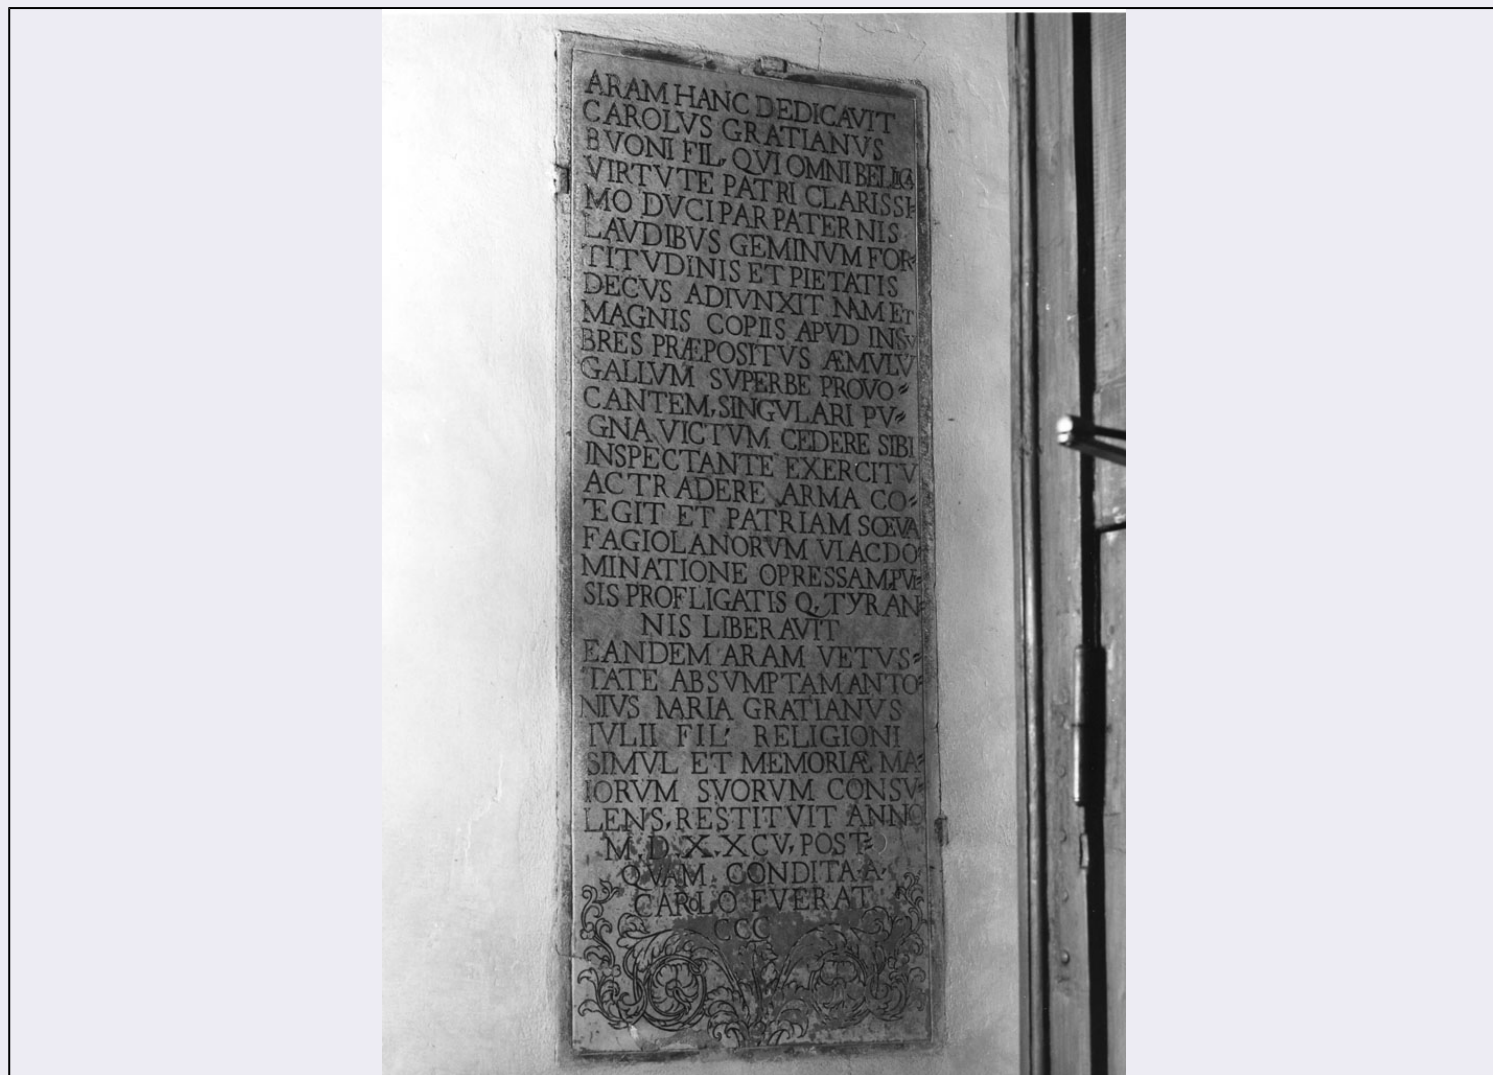 ARAM HANC DEDICAVIT
CAROLVS GRATIANVS
BVONI FIL, QVI OMNI BELLICA
VIRTVTE PATRI CLARISSI=
MO DVCI PAR PATERNIS
LAVDIBVS GEMINVM FOR=
TITVDINIS ET PIETATIS
DECVS ADIVNXIT NAM ET
MAGNIS COPIIS APVD INSV
BRES PRÆPOSITVS ÆMVLV
GALLVM SVPERBE PROVO=
CANTEM, SINGVLARI PV=
GNA VICTVM CEDERE SIBI
INSPECTANTE EXERCITV
AC TRADERE ARMA CO=
EGIT ET PATRIAM SŒVA
FAGIOLANORVM VI AC DO
MINATIONE OPRESSAM, PVL=
SIS PROFLIGATIS Q, TYRAN=
NIS LIBERAVIT
EANDEM ARAM VETVS=
TATE ABSVMPTAM ANTO=
NIVS MARIA GRATIANVS
IVLII FIL' RELIGIONI
SIMVL ET MEMORIÆ MA=
IORVM SVORVM CONSV=
LENS, RESTITVIT ANNO
M, D, X, X C V, POST=
QVAM CONDITA A
CAROLO FVERAT
CCC